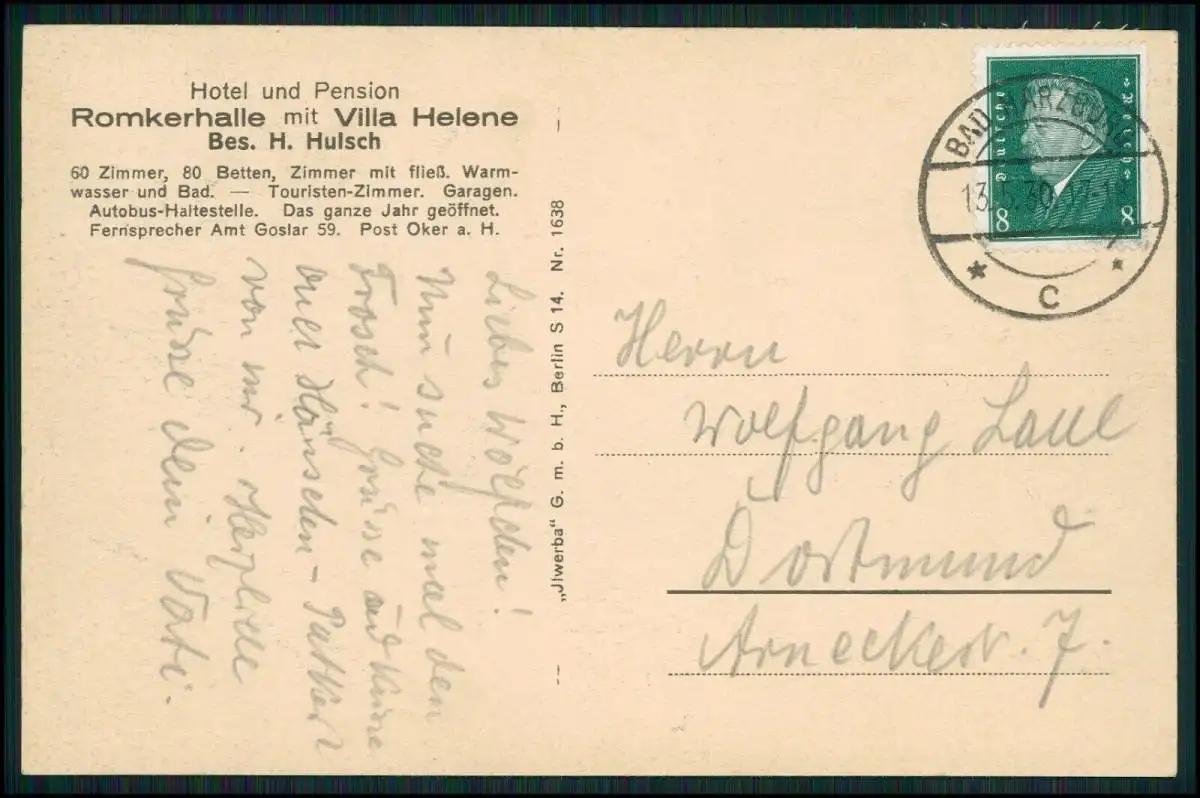 Hotel und Pension
Romkerhalle mit Villa Helene
Bes. H. Hulsch
60 Zimmer, 80 Betten, Zimmer mit fließ. Warm-
wasser und Bad. — Touristen-Zimmer. Garagen.
Autobus-Haltestelle. Das ganze Jahr geöffnet.
Fernsprecher Amt Goslar 59. Post Oker a. H.
Liebes Wölfchen!
Nun suche mal den
Frosch! Grüsse und Küsse
von mir. Herzliche
Grüsse dein Vati.
„Jlwerba“ G. m. b. H., Berlin S 14. Nr. 1638
Deutsches Reich
8 8
BAD HARZBURG
13.5.30. 17-18
* C *
Herrn
Wolfgang Laue
Dortmund
Arneckest. 7.